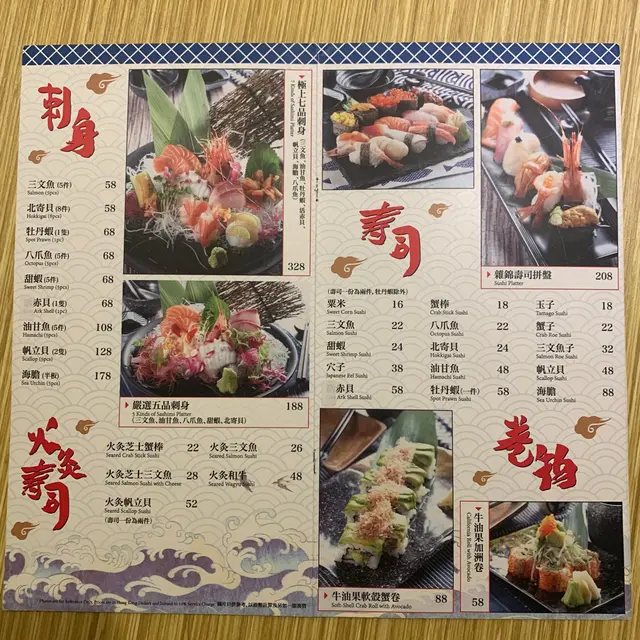 刺身
三文魚 (5件) 58
Salmon (5pcs)
北寄貝 (8件) 58
Hokkigai (8pcs)
牡丹蝦 (1隻) 68
Spot Prawn (1pc)
八爪魚 (5件) 68
Octopus (5pcs)
甜蝦 (5件) 68
Sweet Shrimp (5pcs)
赤貝 (1隻) 68
Ark Shell (1pc)
油甘魚 (5件) 108
Hamachi (5pcs)
帆立貝 (2隻) 128
Scallop (2pcs)
海膽 (半板) 178
Sea Urchin
極上七品刺身
7 Kinds of Sashimi Platter
328
嚴選五品刺身 188
5 Kinds of Sashimi Platter
(三文魚、油甘魚、八爪魚、甜蝦、北寄貝)
火灸壽司
火灸芝士蟹棒 22
Seared Crab Stick Sushi
火灸三文魚 26
Seared Salmon Sushi
火灸芝士三文魚 28
Seared Salmon Sushi with Cheese
火灸和牛 48
Seared Wagyu Sushi
火灸帆立貝 52
Seared Scallop Sushi
(壽司一份為兩件)
壽司
雜錦壽司拼盤 208
Sushi Platter
(壽司一份為兩件, 牡丹蝦除外)
粟米 16
Sweet Corn Sushi
蟹棒 18
Crab Stick Sushi
玉子 18
Tamago Sushi
三文魚 22
Salmon Sushi
八爪魚 22
Octopus Sushi
蟹子 22
Crab Roe Sushi
甜蝦 24
Sweet Shrimp Sushi
北寄貝 24
Hokkigai Sushi
三文魚子 32
Salmon Roe Sushi
穴子 38
Japanese Eel Sushi
油甘魚 48
Hamachi Sushi
帆立貝 48
Scallop Sushi
赤貝 58
Ark Shell Sushi
牡丹蝦(一件) 58
Spot Prawn Sushi
海膽 88
Sea Urchin Sushi
卷物
牛油果軟殼蟹卷 88
Soft-Shell Crab Roll with Avocado
牛油果加洲卷
California Roll with Avocado
58